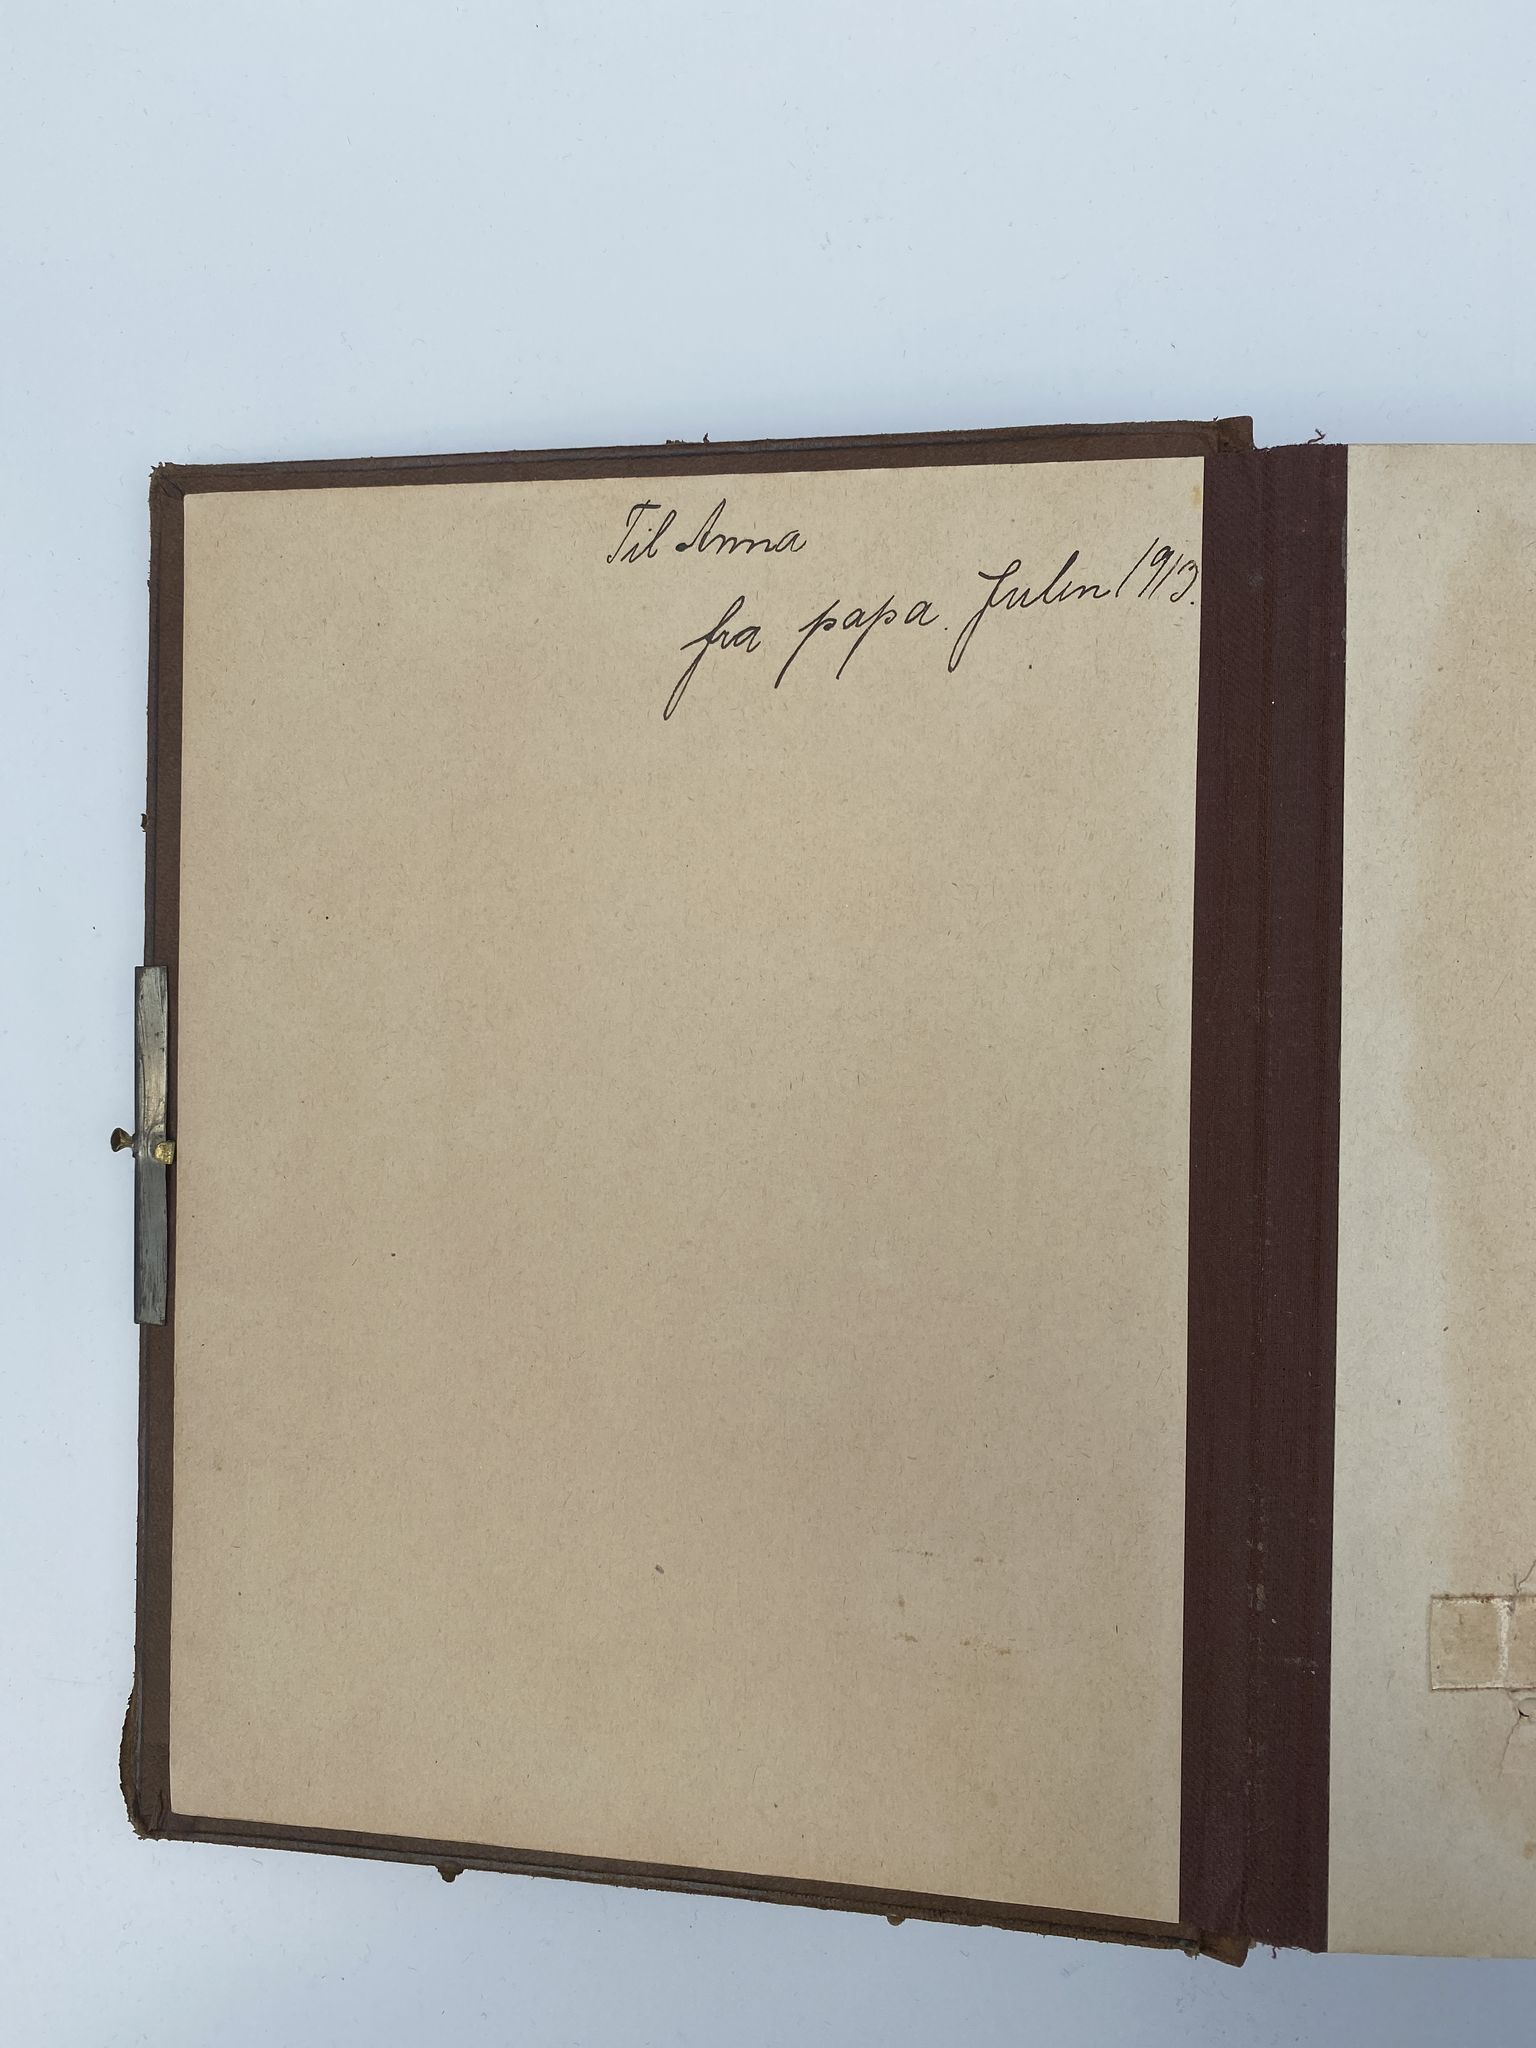 Til Anna
fra papa. Julen 1913.